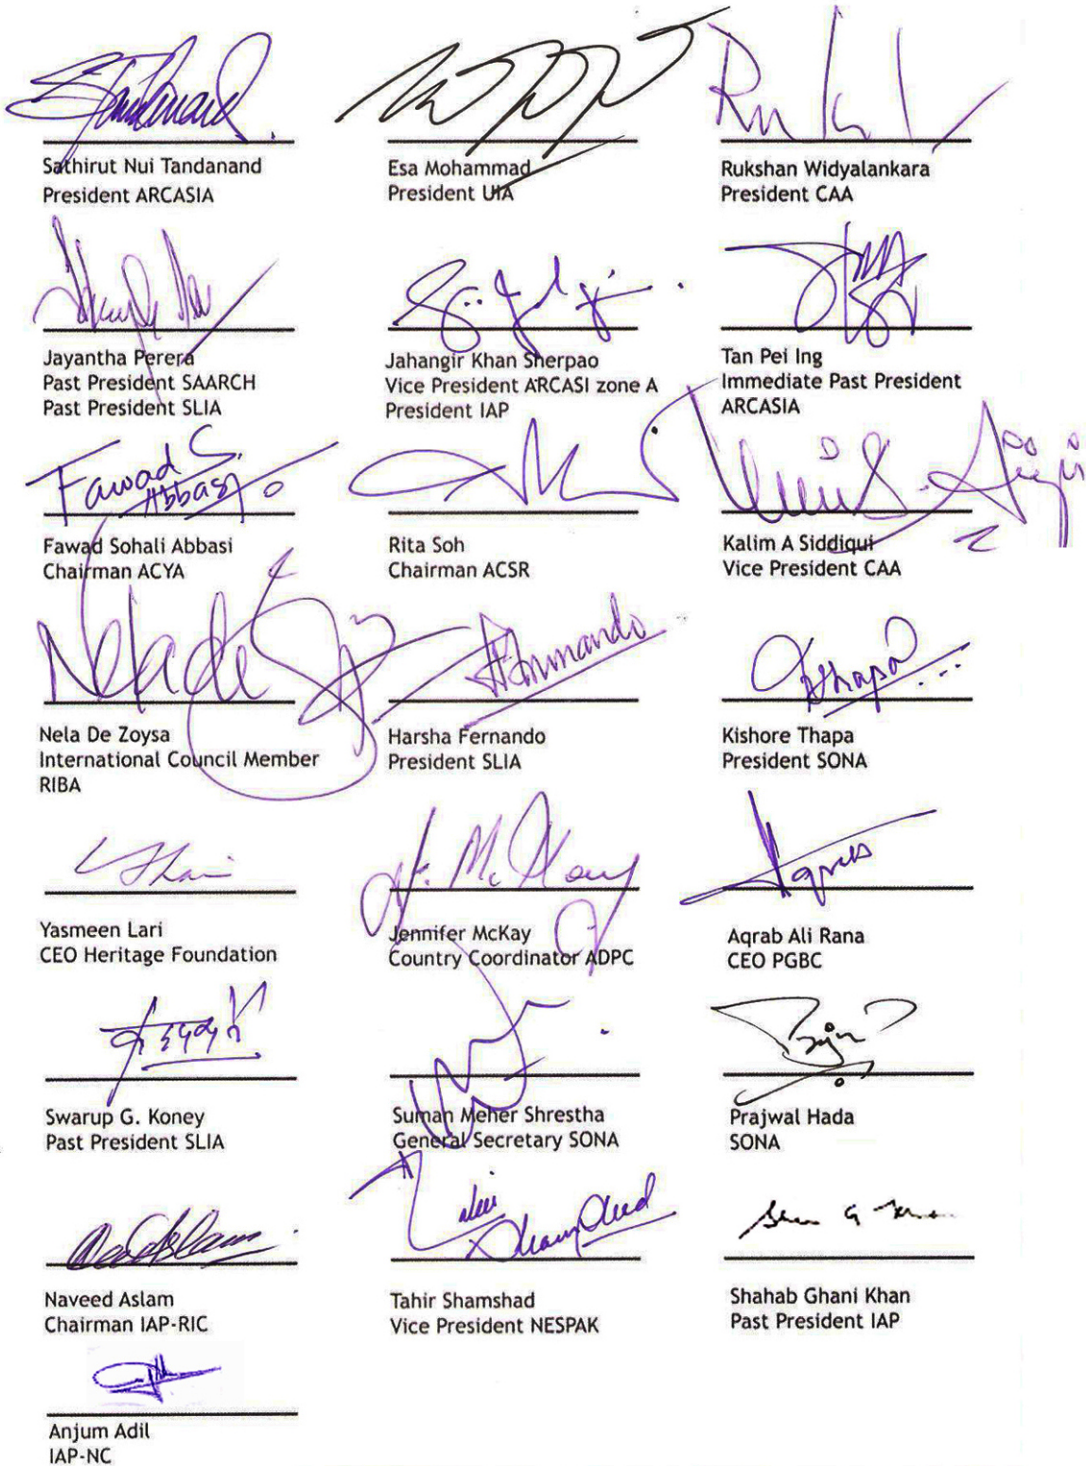 Sathirut Nui Tandanand
President ARCASIA
Esa Mohammad
President UIA
Rukshan Widyalankara
President CAA
Jayantha Perera
Past President SAARCH
Past President SLIA
Jahangir Khan Sherpao
Vice President ARCASI zone A
President IAP
Tan Pei Ing
Immediate Past President
ARCASIA
Fawad S.
Abbasi
Fawad Sohali Abbasi
Chairman ACYA
Rita Soh
Chairman ACSR
Kalim A Siddiqui
Vice President CAA
Nela de
Nela De Zoysa
International Council Member
RIBA
Harsha Fernando
President SLIA
Thapa
Kishore Thapa
President SONA
Yasmeen Lari
CEO Heritage Foundation
J. McKay
Jennifer McKay
Country Coordinator ADPC
Aqrab Ali Rana
CEO PGBC
Swarup G. Koney
Past President SLIA
Suman Meher Shrestha
General Secretary SONA
Prajwal Hada
SONA
Naveed Aslam
Chairman IAP-RIC
Tahir Shamshad
Vice President NESPAK
Shahab Ghani Khan
Past President IAP
Anjum Adil
IAP-NC